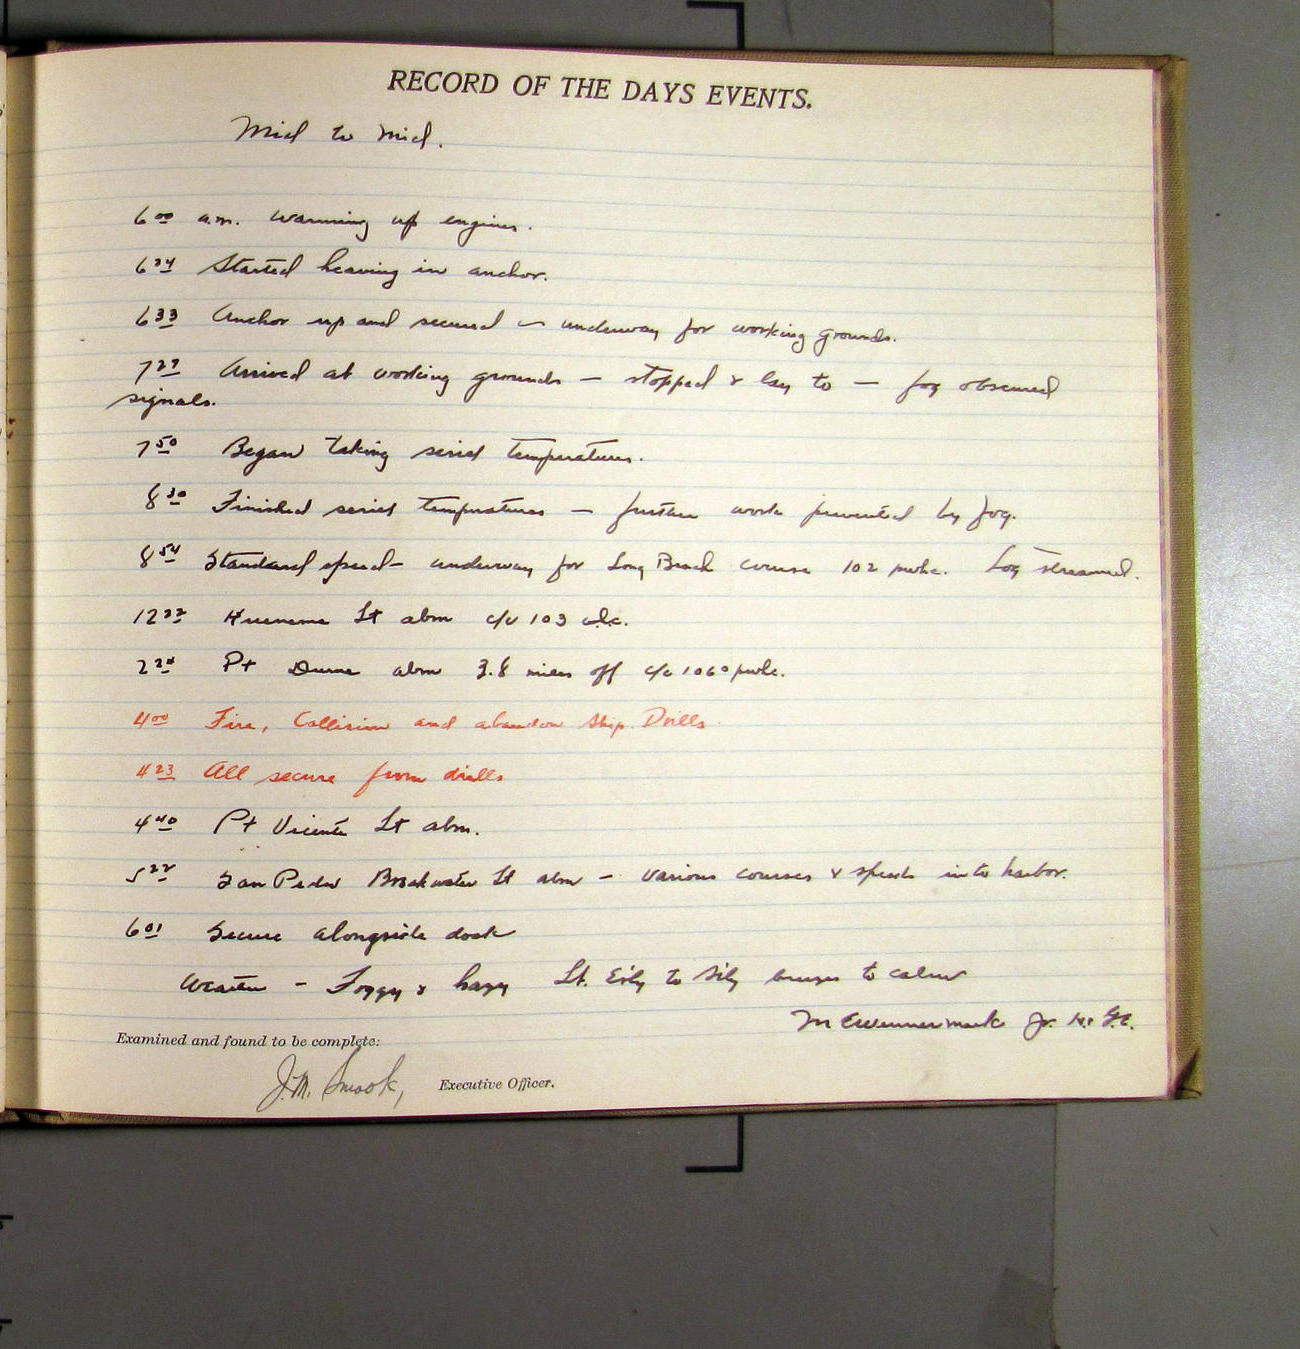 RECORD OF THE DAYS EVENTS.
Mid to Mid.
6 00 a.m. Warming up engines.
6 24 Started heaving in anchor.
6 33 Anchor up and secured — underway for working grounds.
7 27 Arrived at working grounds — stopped & lay to — fog obscured
signals.
7 50 Began taking serial temperatures.
8 30 Finished serial temperatures — further work prevented by fog.
8 54 Standard speed — underway for Long Beach course 102 Log streamed.
12 22 Hueneme Lt abm c/c 103
2 24 Pt Dume abm 3.8 miles off c/c 106°
4 00 Fire, Collision and abandon Ship Drills
4 23 All secure from drills
4 40 Pt Vicente Lt abm.
5 22 San Pedro Breakwater Lt abm — various courses & speeds into harbor.
6 01 Secure alongside dock
Weather — Foggy & hazy Lt. E'ly to S'ly breezes to calm
Examined and found to be complete:
J.M. Smook, Executive Officer.